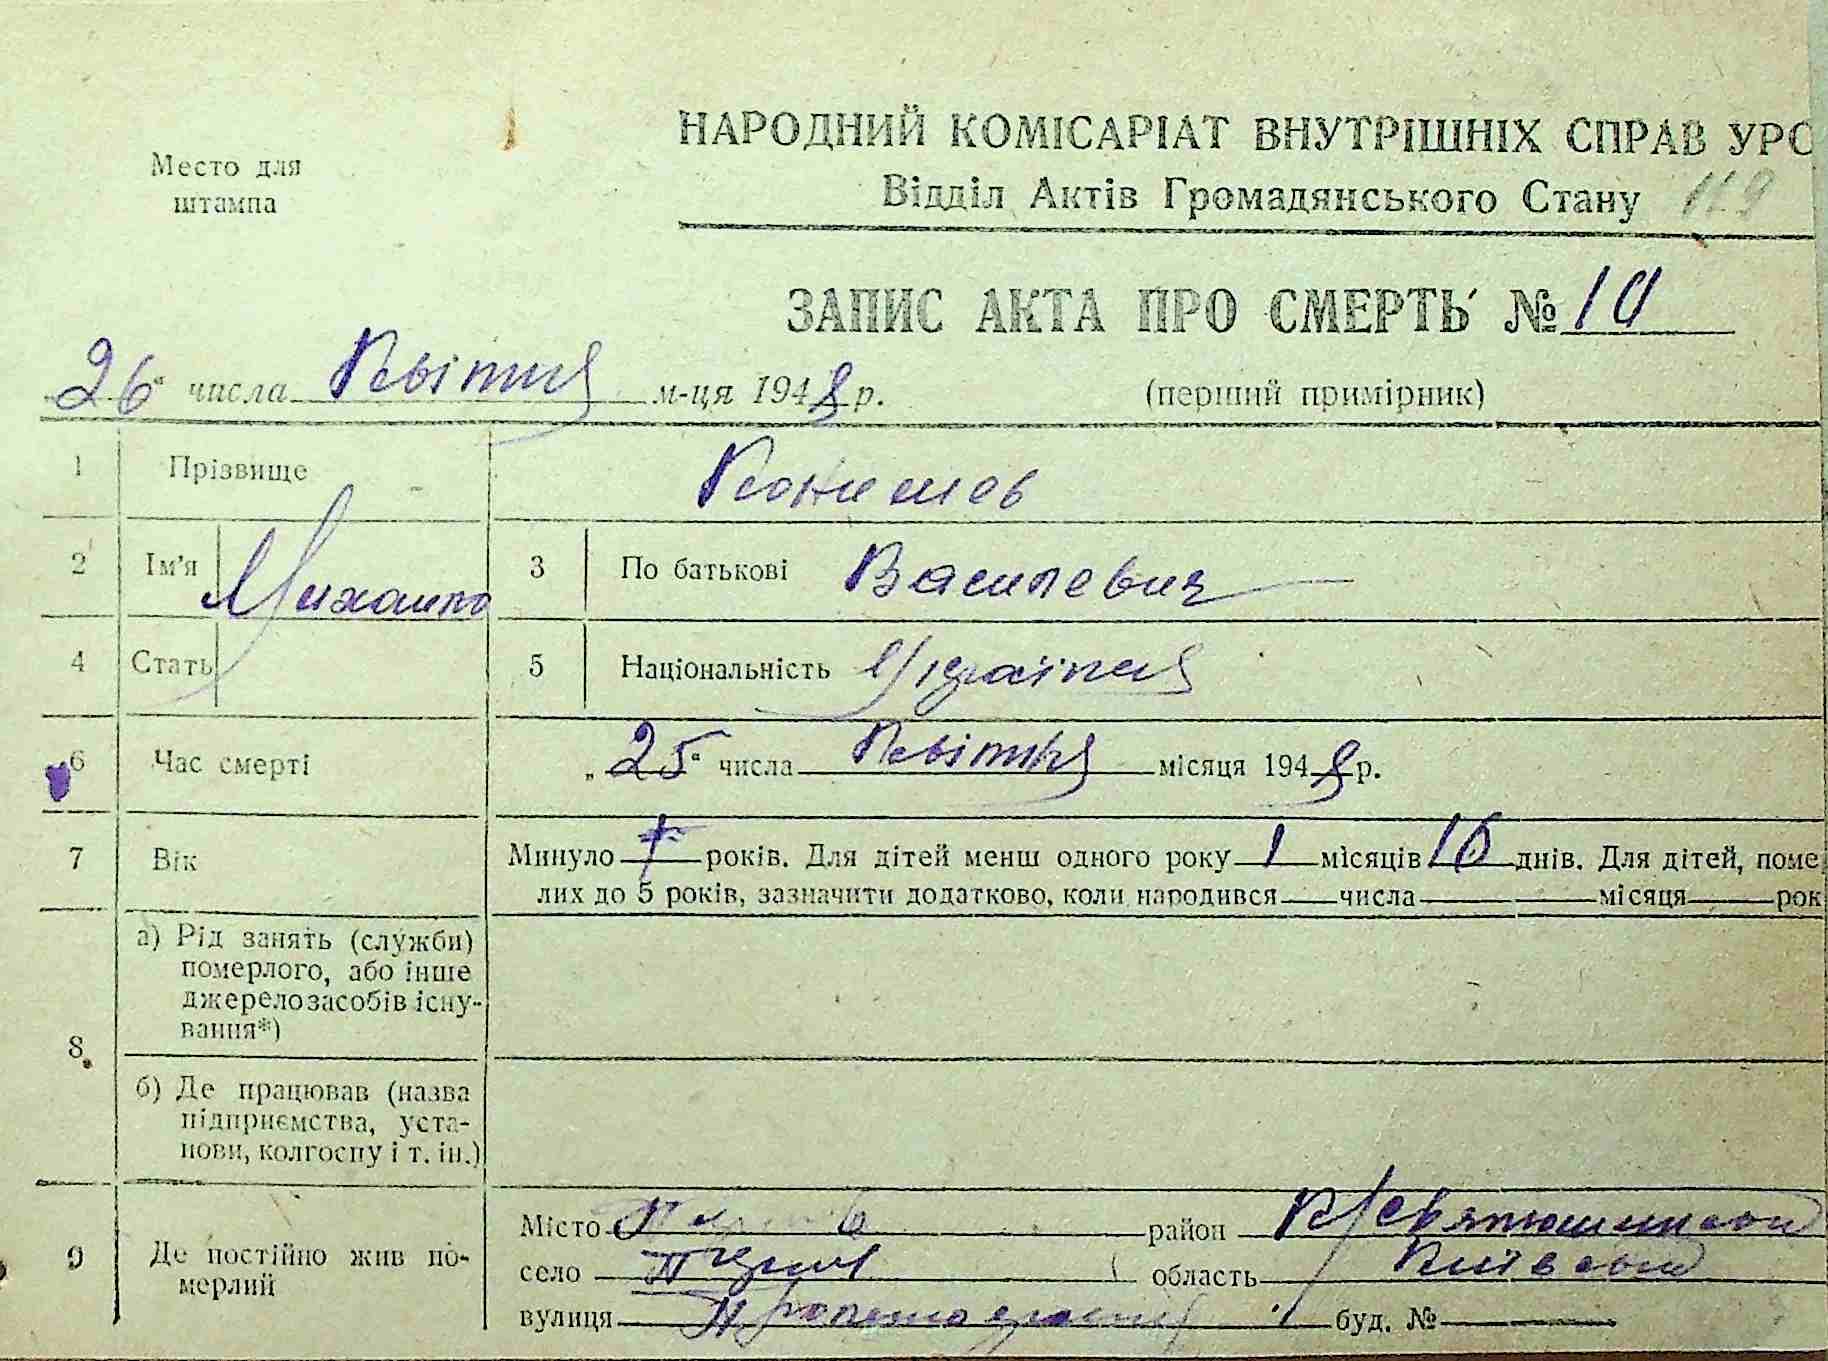 Место для
штампа
НАРОДНИЙ КОМІСАРІАТ ВНУТРІШНІХ СПРАВ УРС
Відділ Актів Громадянського Стану 119
ЗАПИС АКТА ПРО СМЕРТЬ № 10
26 числа Квітня м-ця 1948 р.
(перший примірник)
1 Прізвище
2 Ім'я Михайло 3 По батькові Василевич
4 Стать 5 Національність
6 Час смерті „25“ числа Квітня місяця 1948 р.
7 Вік Минуло років. Для дітей менш одного року 1 місяців 16 днів. Для дітей, поме
лих до 5 років, зазначити додатково, коли народився числа місяця рок
8 а) Рід занять (служби)
померлого, або інше
джерело засобів існу-
вання*)
б) Де працював (назва
підприємства, уста-
нови, колгоспу і т. ін.)
9 Де постійно жив по-
мерлий
Місто район К/Святошинский
село область Київська
вулиця буд. №